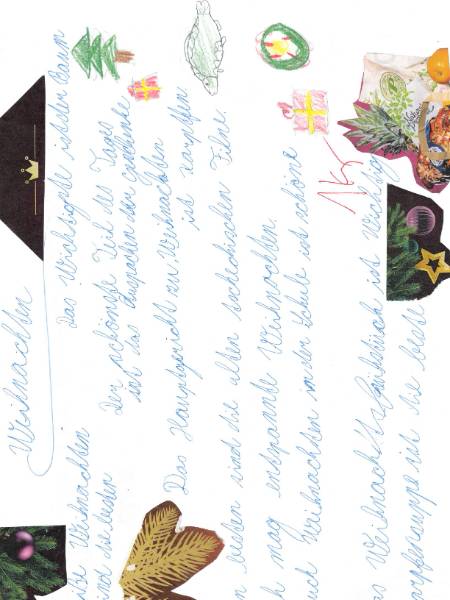 Weihnachten
ße Weihnachten
ind die besten
Das Wichtigste ist der Baum
Der schönste Teil des Tages
ist das Auspacken der Geschenke
Das Hauptgericht zu Weihnachten
ist Karpfen
n besten sind die alten tschechischen Filme.
h mag entspannte Weihnachten.
uch Weihnachten in der Schule ist schöne
as Weihnachts ist wichtig
arpfensuppe ist die beste